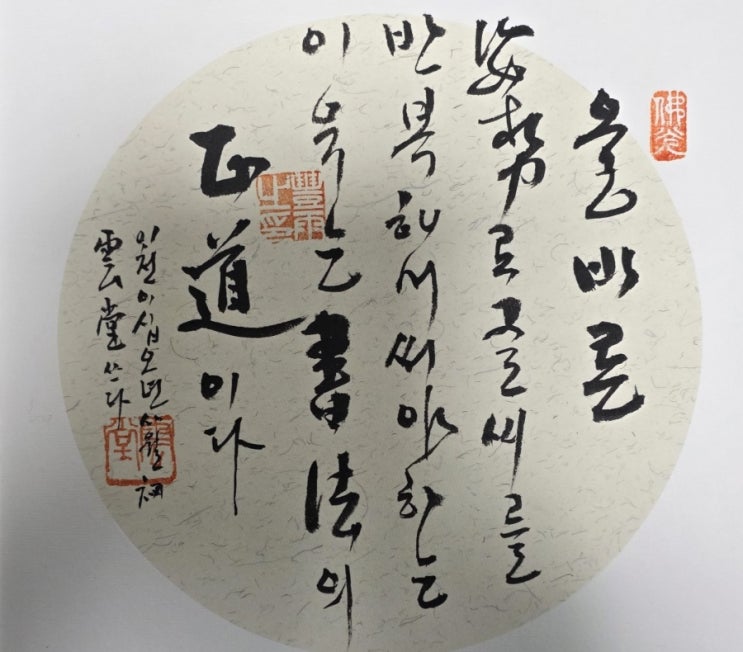 올바른
姿勢로 글씨를
반복해서 써야 하는
이유는 書法의
正道이다
이천이십오년 사월 初
雲堂 쓰다